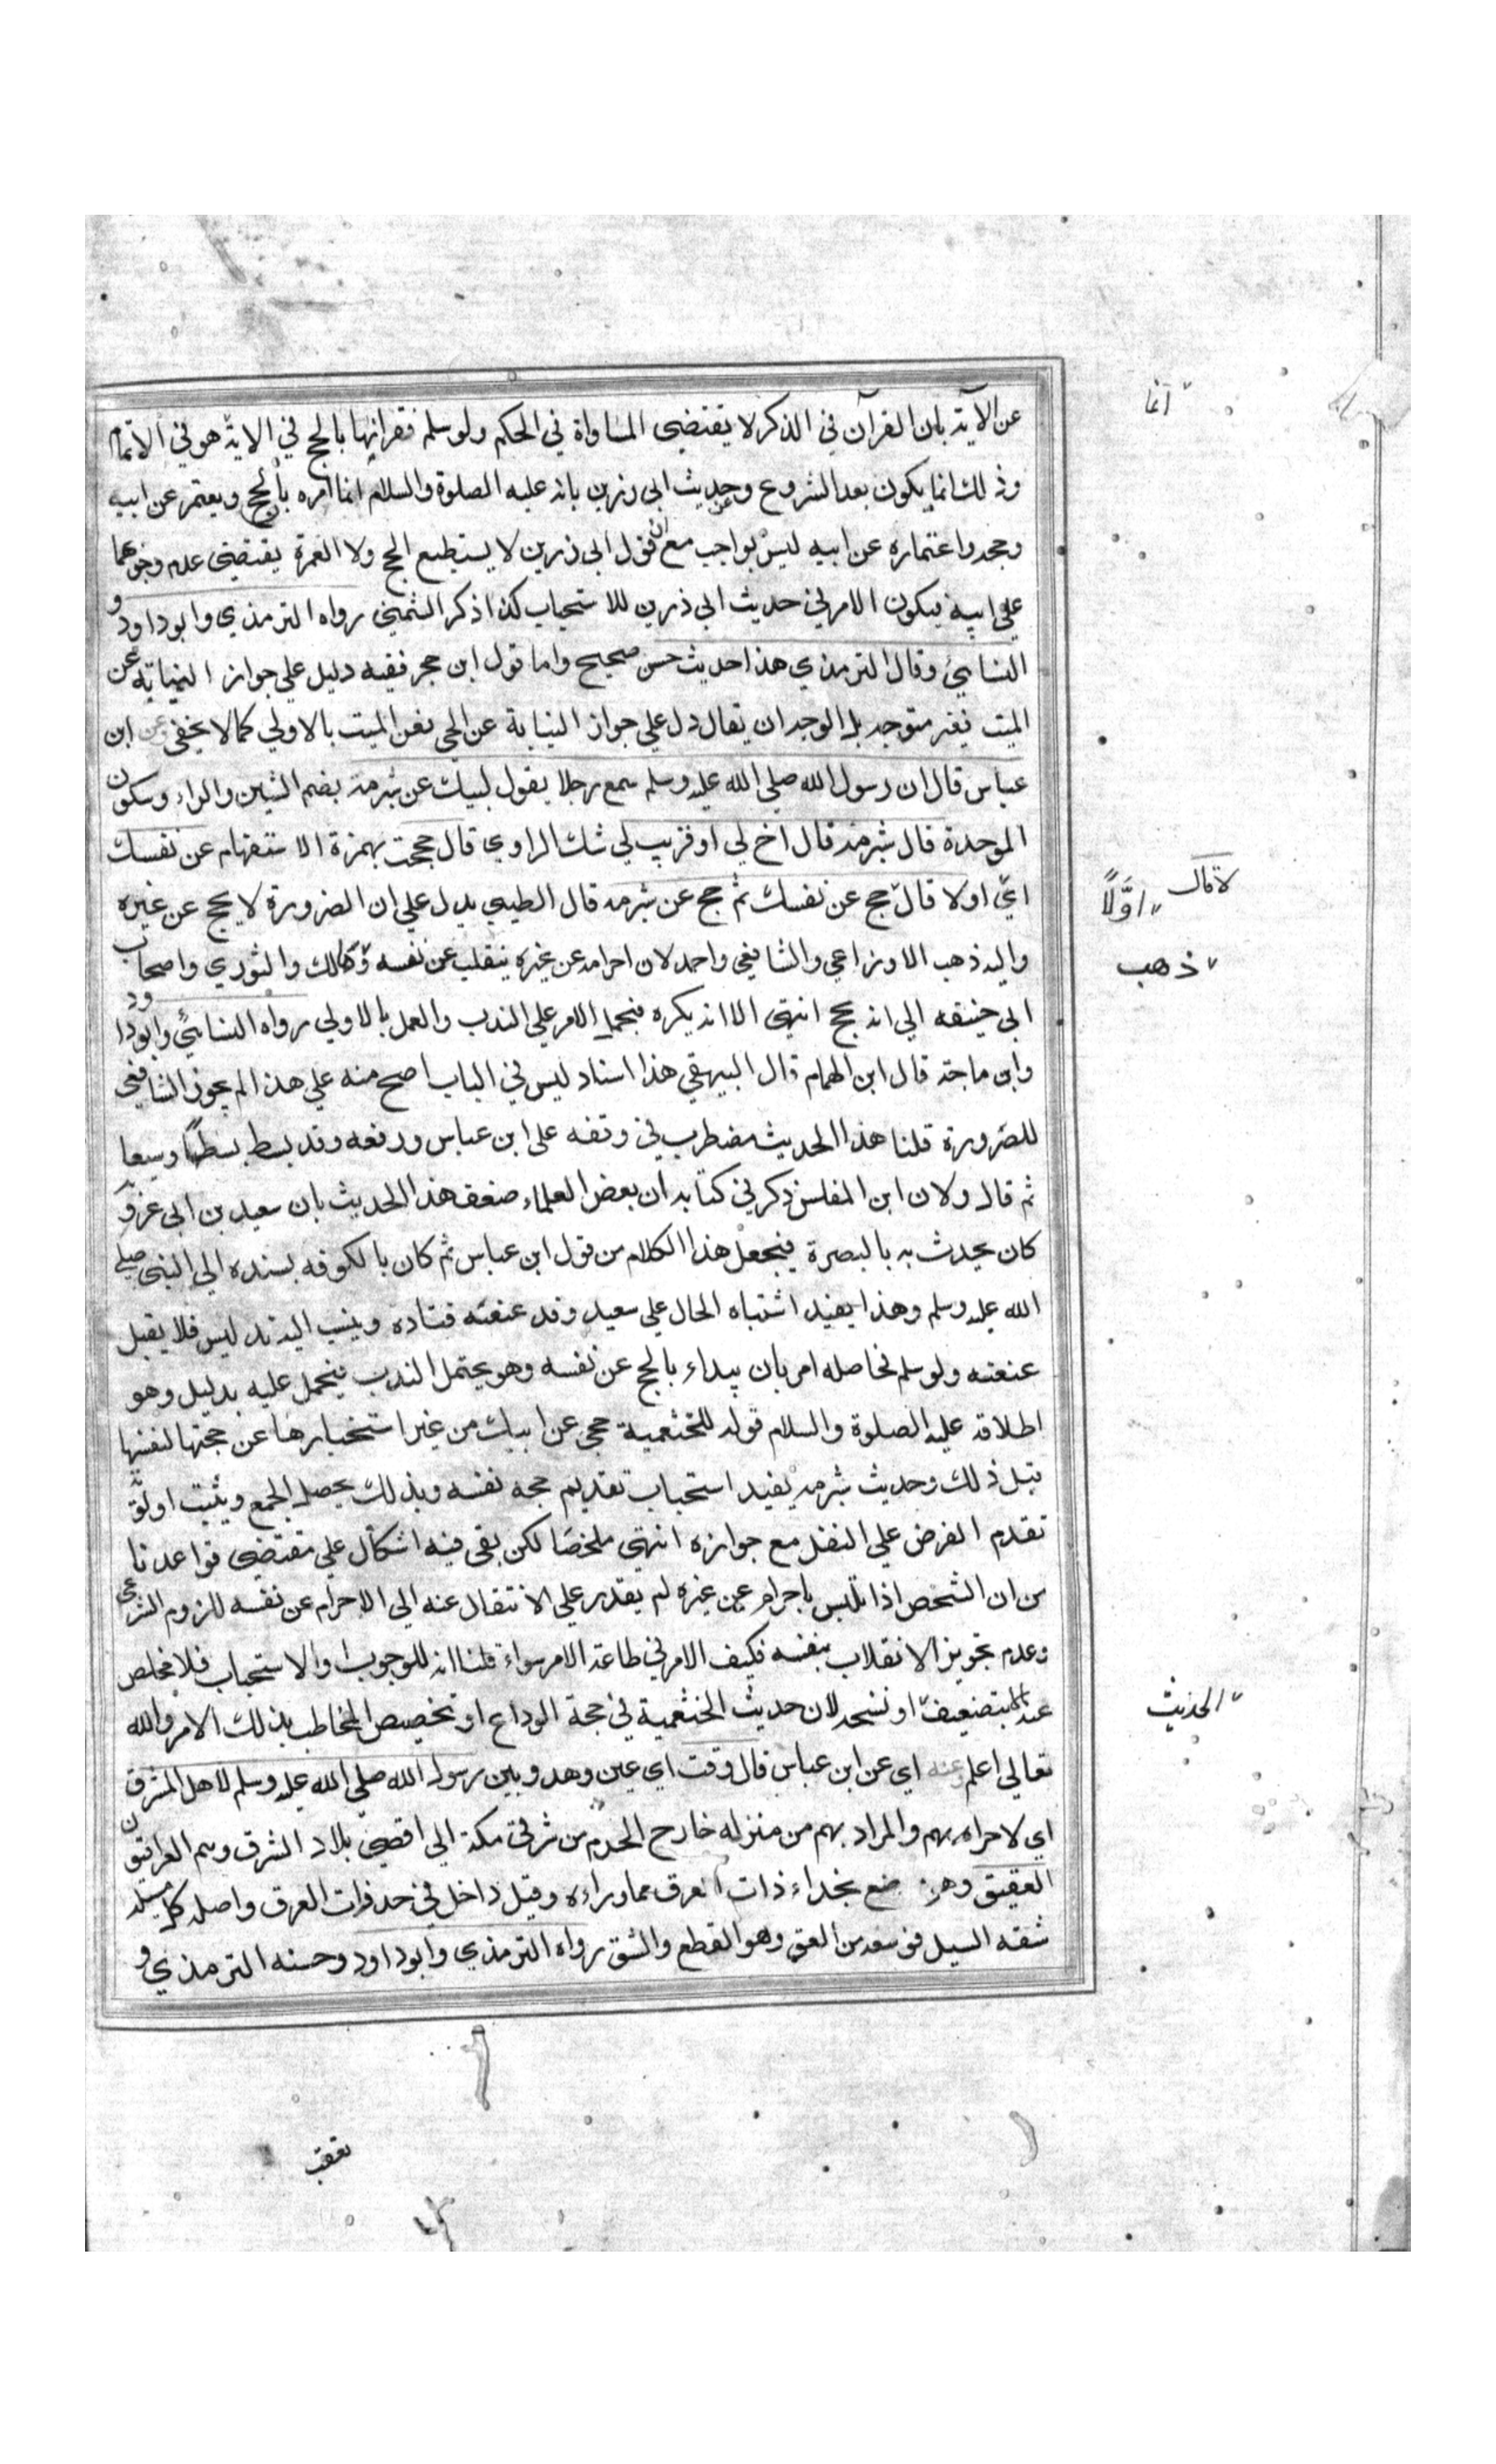 عن الآية بان القرآن في الذكر لا يقتضي المساواة في الحكم ولو سلم فقرانها بالحج في الاية هو في الاتمام
وذلك انما يكون بعد الشروع وعن حديث ابي رزين بانه عليه الصلوة والسلام انما امره بالحج ويعتمر عن ابيه
وحجه واعتماره عن ابيه ليس بواجب مع ان قول ابي رزين لا يستطيع الحج ولا العمرة يقتضي عدم وجوبهما
علي ابيه فيكون الامر في حديث ابي ذرين للاستحباب كذا ذكر الشمني رواه الترمذي وابو داود و
النسايئ وقال الترمذي هذا حديث حسن صحيح واما قول ابن حجر ففيه دليل علي جواز النيابة عن
الميت فغير متوجه بل الوجه ان يقال دل علي جواز النيابة عن الحي فعن الميت بالاولي كما لا يخفي وعن ابن
عباس قال ان رسول الله صلي الله عليه وسلم سمع رجلا يقول لبيك عن شبرمة بضم الشين والراء وسكون
الموحدة قال شبرمة قال اخ لي او قريب لي شك الراوي قال حججت بهمزة الاستفهام عن نفسك
اي اولا قال حج عن نفسك ثم حج عن شبرمه قال الطيبي يدل علي ان الضرورة لا يحج عن غيره
واليه ذهب الاوزاعي والشافعي واحمد لان احرامه عن غيره ينقلب عن نفسه وَمَالك والثوري واصحاب
ابي حنيفه الي انه يحج انتهي الا انه يكره فيحمل الامر علي الندب والعمل بالاولي رواه النسايئ وابو داود
وابن ماجة قال ابن الهمام قال البيهقي هذا اسناد ليس في الباب اصح منه علي هذا لم يجوز الشافعي
للصرورة قلنا هذا الحديث مضطرب في وقفه على ابن عباس ورفعه وقد بسط بسطًا وسيعا
ثم قال ولان ابن المفلس ذكر في كتابه ان بعض العلماء ضعف هذا الحديث بان سعيد بن ابي عروة
كان يحدث به بالبصرة فيجعل هذا الكلام من قول ابن عباس ثم كان بالكوفه يسنده الي النبي صلي
الله عليه وسلم وهذا يفيد اشتباه الحال علي سعيد وقد عنعنه قتاده وينسب اليه تدليس فلا يقبل
عنعنته ولو سلم فحاصله امر بان يبداء بالحج عن نفسه وهو يحتمل الندب فيحمل عليه بدليل وهو
اطلاقه عليه الصلوة والسلام قوله للخثعمية حجي عن ابيك من غير استخبارها عن حجتها لنفسها
قبل ذلك وحديث شبرمه يفيد استحباب تقديم حجه نفسه وبذلك يحصل الجمع ويثبت اولوية
تقدم الفرض علي النفل مع جوازه انتهي ملخصًا لكن بقي فيه اشكال علي مقتضي قواعدنا
من ان الشخص اذا تلبس باحرام عن غيره لم يقدر علي الانتقال عنه الي الاحرام عن نفسه للزوم الشرعي
وعدم تجويز الانقلاب بنفسه فكيف الامر في طاعة الامر سواء قلنا انه للوجوب او الاستحباب فلا مخلص
عنه الا بتضعيف او نسخه لان حديث الخثعمية في حجة الوداع او تخصيص المخاطب بذلك الامر والله
تعالي اعلم وعنه اي عن ابن عباس قال وقت اي عين وحد وبين رسول الله صلي الله عليه وسلم لاهل المشرق
اي لاحرامهم والمراد بهم من منزله خارج الحرم من شرقي مكة الي اقصي بلاد الشرق وهم العراقيون
العقيق وهو موضع بحذاء ذات العرق مما وراءه وقيل داخل في حد ذات العرق واصله كل مسيل
شقه السيل فوسعه من العق وهو القطع والشق رواه الترمذي وابو داود وحسنه الترمذي و
انما
لا قال
اوّلًا
ذهب
الحديث
تعقب